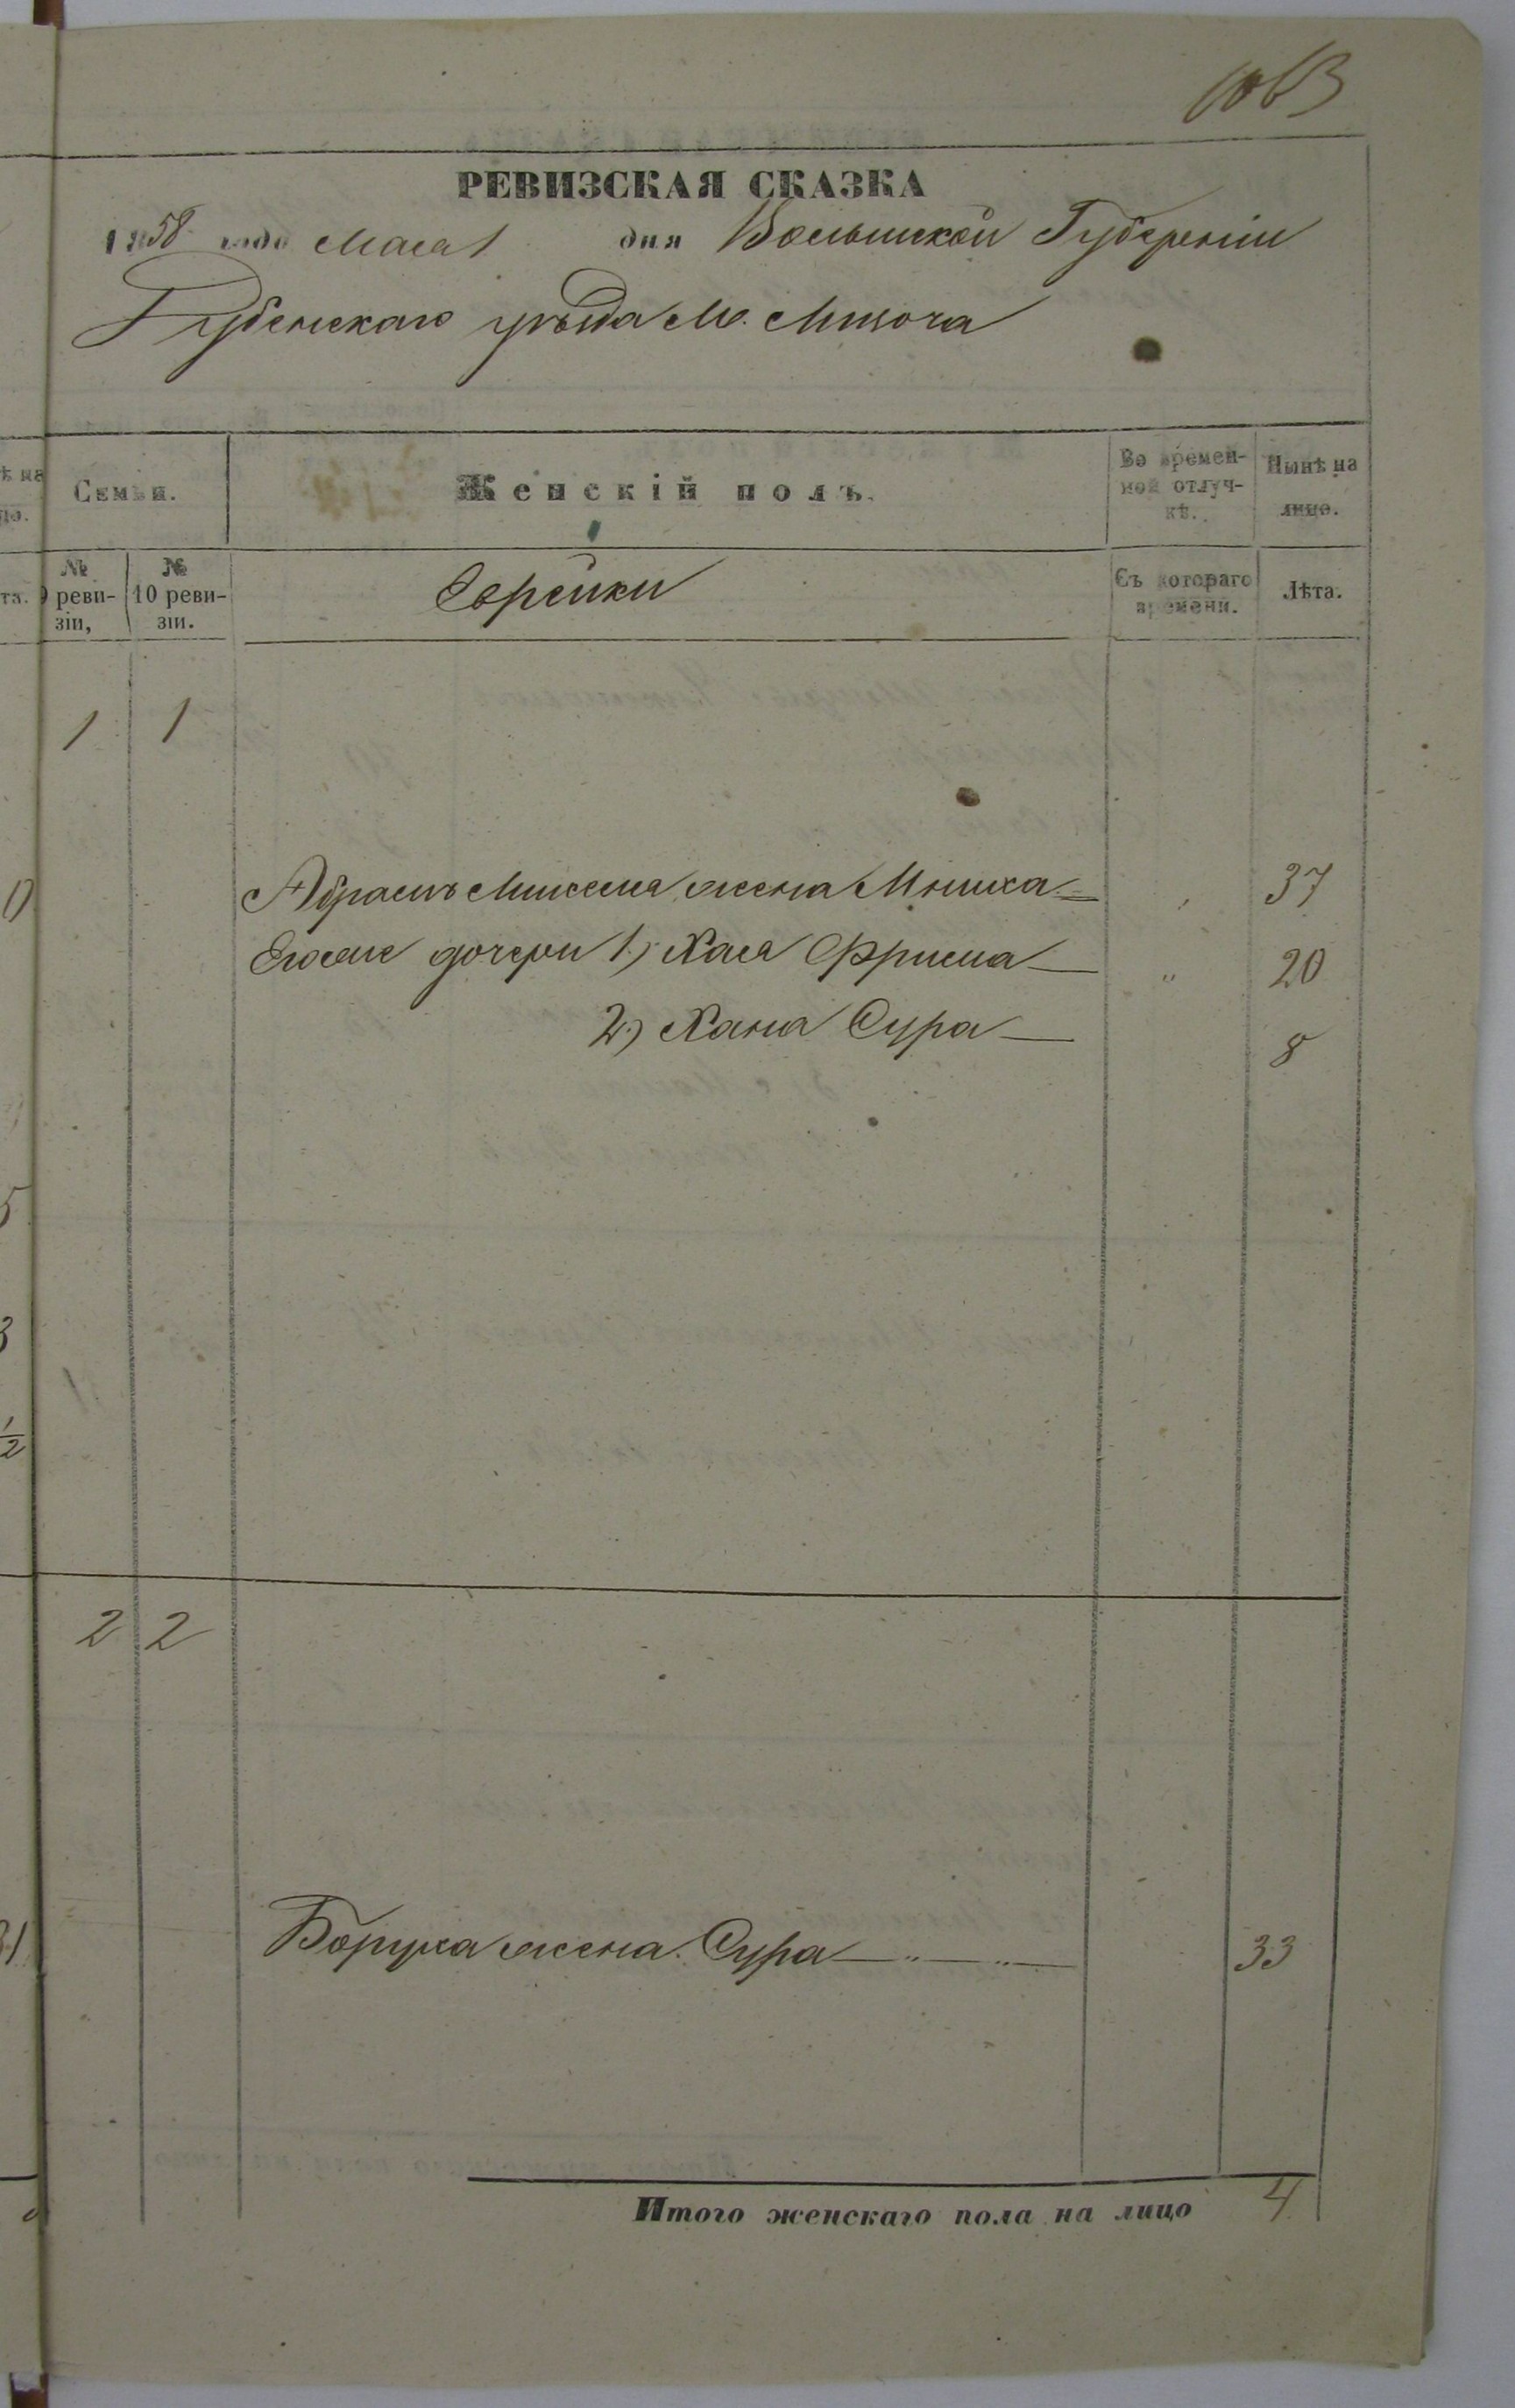 1063
РЕВИЗСКАЯ СКАЗКА
1858 года Мая 1 дня Волынской Губерніи
Дубенскаго уѣзда М. Мизоча
Семьи.
Женскій полъ.
Во времен-
ной отлуч-
кѣ.
Нынѣ на
лицо.
№
9 реви-
зіи,
№
10 реви-
зіи.
Еврейки
Съ котораго
времени.
Лѣта.
1 1
Абрамъ жена 37
Егоже дочери 1.) Хая Фрима 20
2.) Хана Сура 8
2 2
Боруха жена Сура 33
Итого женскаго пола на лицо 4